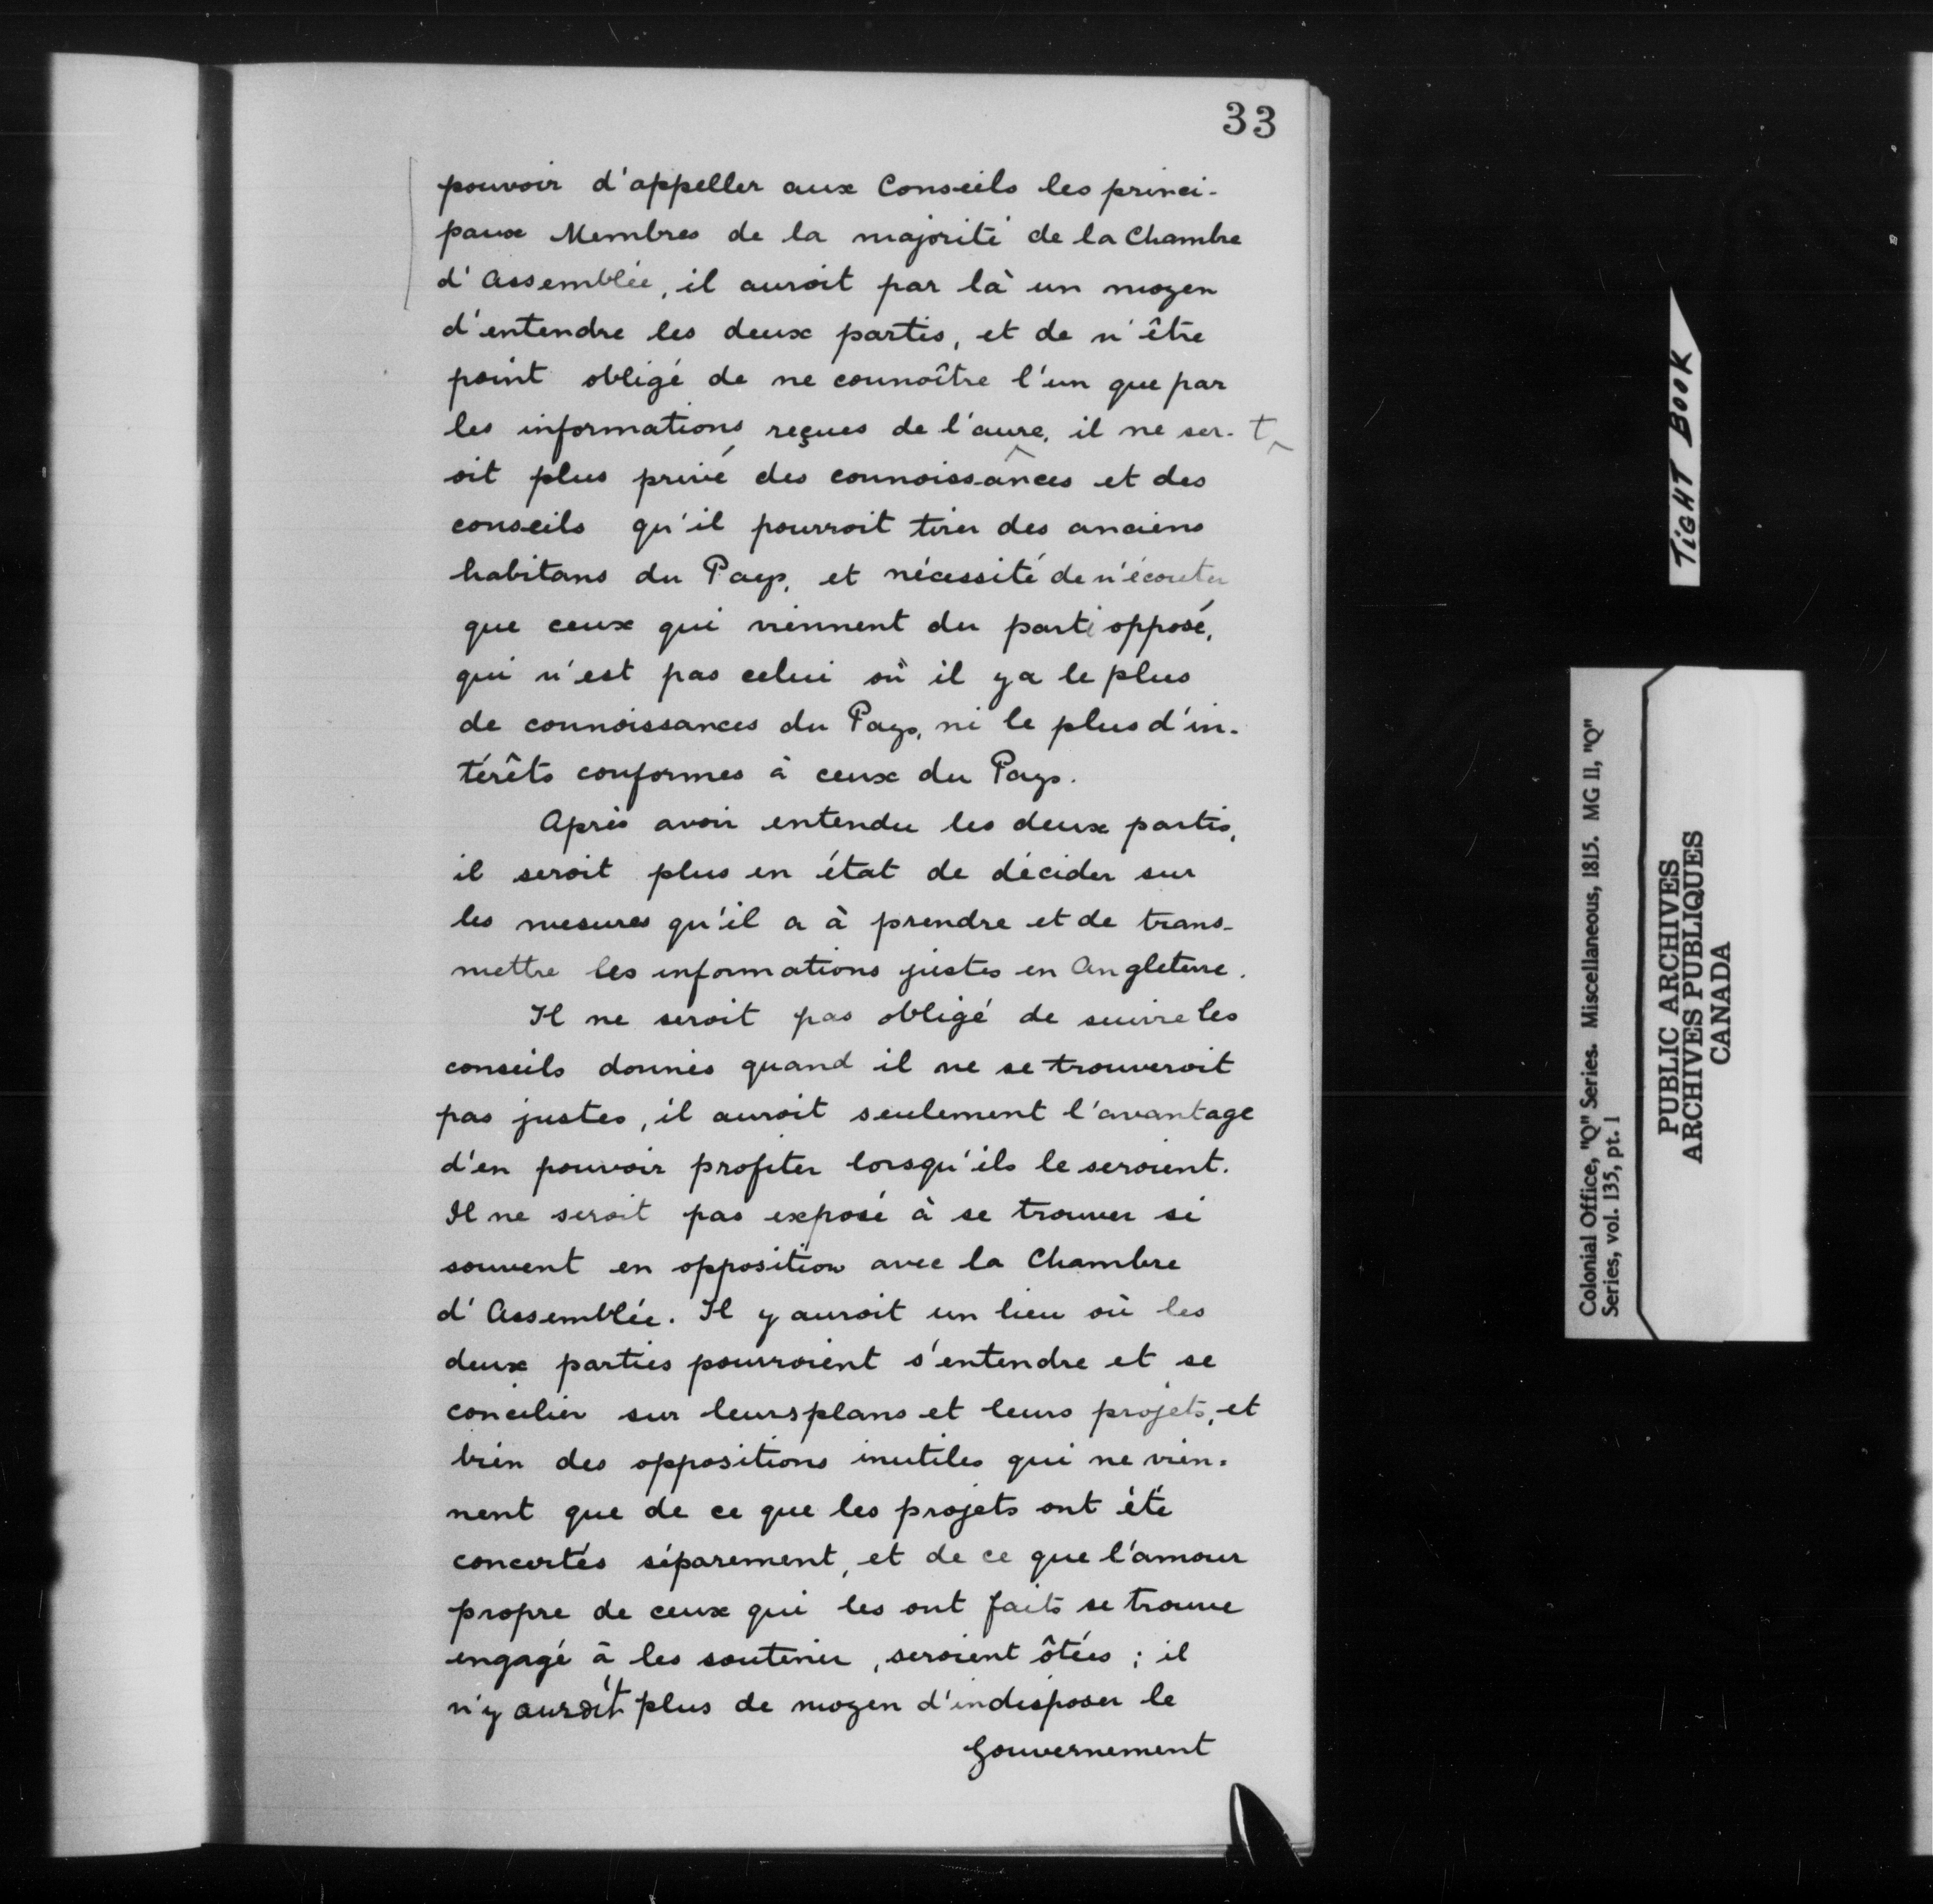 33
pouvoir d'appeller aux Conseils les princi-
paux Membres de la majorité de la Chambre
d'Assemblée, il auroit par là un moyen
d'entendre les deux partis, et de n'être
point obligé de ne connoître l'un que par
les informations reçues de l'aure, il ne ser- t
oit plus privé des connoissances et des
conseils qu'il pourroit tirer des anciens
habitans du Pays, et nécessité de n'écouter
que ceux qui viennent du parti opposé,
qui n'est pas celui où il y a le plus
de connoissances du Pays, ni le plus d'in-
térêts conformes à ceux du Pays.
Après avoir entendu les deux partis,
il seroit plus en état de décider sur
les mesures qu'il a à prendre et de trans-
mettre les informations justes en Angleterre.
Il ne seroit pas obligé de suivre les
conseils donnés quand il ne se trouveroit
pas justes, il auroit seulement l'avantage
d'en pouvoir profiter lorsqu'ils le seroient.
Il ne seroit pas exposé à se trouver si
souvent en opposition avec la Chambre
d'Assemblée. Il y auroit un lieu où les
deux parties pourroient s'entendre et se
concilier sur leurs plans et leurs projets, et
bien des oppositions inutiles qui ne vien-
nent que de ce que les projets ont été
concertés séparement, et de ce que l'amour
propre de ceux qui les ont faits se trouve
engagé à les soutenir, seroient ôtées; il
n'y auroit plus de moyen d'indisposer le
Gouvernement
TIGHT BOOK
Colonial Office, "Q" Series. Miscellaneous, 1815. MG 11, "Q"
Series, vol. 135, pt. 1
PUBLIC ARCHIVES
ARCHIVES PUBLIQUES
CANADA